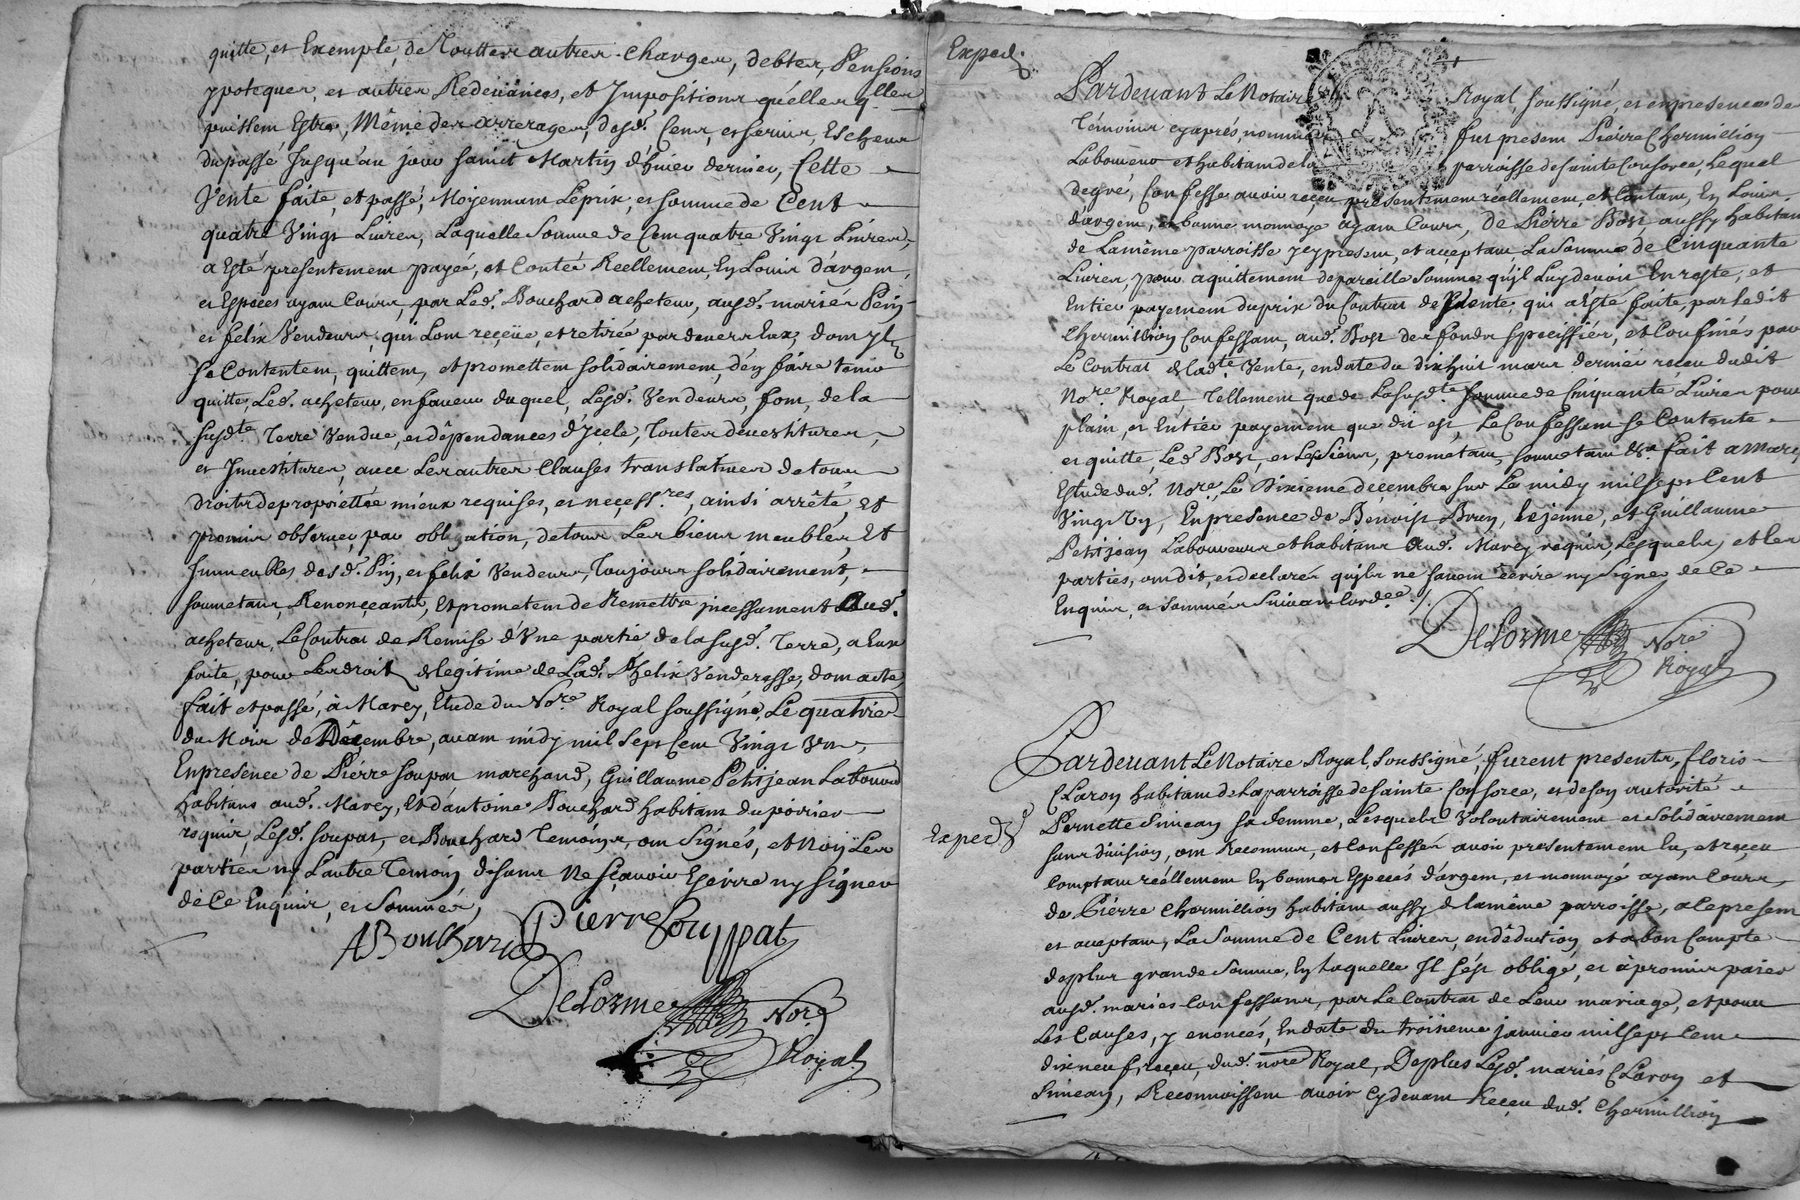 quitte, et Exempte, de Touttes autres charges, debtes, Pensions
ypoteques, et autres Redevances, et Impositions qu'elles q.lles
puissent Estre, Même des arrerages, desd. Cens, et servis, Escheus
du passé Jusqu'au jour saint Martin d'hiver dernier, Cette
Vente faite, et passé, Moyennant Le prix, et somme de Cent
quatre Vingt Livres, Laquelle Somme de Cent quatre Vingt Livres,
a Esté presentement payée, et Contée Reellement, En Louis d'argent,
et Especes ayant Cours, par Led. Bouchard acheteur, ausd. mariés Pein
et felix Vendeurs, qui L'ont reçeüe, et retirée pardevers Eux, dont yls
se Contentent, quittent, et promettent solidairement, d'en faire tenir
quitte, Led. acheteur, en faveur duquel, Lesd. Vendeurs, font, de la
susd.te Terre Vendue, et dêpendances d'Icele, Toutes devestitures,
et Investitures, avec Les autres Clauses translatives de tous
droits de proprietée mieux requises, et neçess.res, ainsi arrêté, Et
promis observer, par obligation, de tous Les biens meubles Et
Immeubles desd. Pin, et felix Vendeurs, Toujours solidairement,
soumetans, Renonceants, Et prometent de Remettre incessament Aud.
acheteur, Le Contrat de Remise d'Une partie de la susd. Terre, a Eux
faite, pour Les droits de legitime de Lad. felix Venderesse, dont acte
fait et passé, à Marcy, Etude du No.re Royal soussigné, Le quatrie
du Mois de Décembre, avant midy mil sept Cent Vingt Un,
En presence de Pierre Soupat marchand, Guillaume Petitjean Laboureur
habitans aud. Marcy, Et d'antoine Bouchard habitant du poirier
requis, Lesd. Soupat, et Bouchard Temoins, ont Signés, et Non Les
parties ny L'autre Temoin disant Ne sçavoir Escrire ny signer
de Ce Enquis, et Sommés,
ABouchard Pierre Souppat
DeLorme No.re
Royal
Exped.
Pardevant Le Notaire Royal, soussigné, et en presence de
Témoins cy aprés nommés, fut present Pierre Chermillion
Laboureur et habitant de la parroisse de sainte Consorce, Lequel
de gré, Confesse avoir reçeu presentement reéllement, et Contant, En Louis
d'argent, et bonne monnoye ayant Cours, de Pierre Bost aussy habitant
de La même parroisse Icy present, et acceptant La Somme de Cinquante
Livres, pour aquittement de pareille Somme qu'il Luy devoit En reste, et
Entier payement du prix du Contrat de Vente, qui a Esté faite, par Ledit
Chermillion Confessant, aud. Bost des fonds Specissiés, et Confinés par
Le Contrat de Lad.te Vente, en date du dix huit mars dernier receu dudit
No.re Royal Tellement que de La susd.te Somme de Cinquante Livres pour
plain, et Entier payement que dit est, Le Confessant se Contente
et quitte, Led. Bost, et Les Siens, prometant, soumetant &a fait a Marcy
Estude dud. No.re, Le Dixieme decembre sur Le midy mil sept Cent
Vingt Un, En presence de Benoist Brun, Le jeune, et Guillaume
Petitjean Laboureurs et habitans Aud. Marcy requis, Lesquels, et Les
parties, ont dit, et declarés qu'ils ne savent écrire ny Signer de Ce
Enquis, et Sommés Suivant L'ord.ce./.
DeLorme No.re
Royal
Pardevant Le Notaire Royal, Soussigné, furent presents, floris
CLaron habitant de La parroisse de sainte Consorce, et de son autorité
Exped
Pernette Simean sa femme, Lesquels Volontairement et Solidairement
sans division, ont Reconnus, et Confessés avoir presentement Eu, et reçeu
Comptant réellement En bonnes Especes d'argent, et monnoye ayant Cours
de Piérre Chermillion habitant aussy de la même parroisse, a Ce present
et acceptant, La Somme de Cent Livres, en dêduction, et a bon Compte
de plus grande Somme, En Laquelle Il s'est obligé, et à promis paier
ausd. mariés Confessans, par Le Contrat de Leur mariage, et pour
Les Causes, y enoncés, En date du troisieme janvier mil sept Cent
dix neuf, reçeu, dud. No.re Royal, De plus Lesd. mariés CLaron et
Simean, Reconnoissent avoir Cy devant reçeu dud. Chermillion